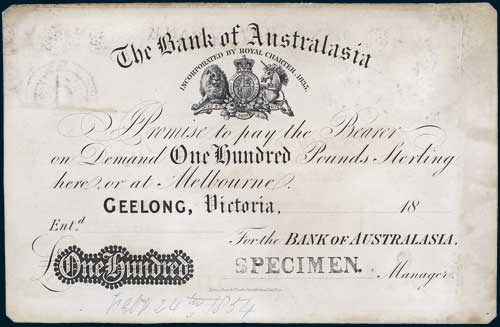 The Bank of Australasia
INCORPORATED BY ROYAL CHARTER, 1835.
I Promise to pay the Bearer
on Demand One Hundred Pounds Sterling
here, or at Melbourne.
GEELONG, Victoria, 18
Ent.d
For the BANK OF AUSTRALASIA.
£ One Hundred
SPECIMEN. Manager.
24th 1854